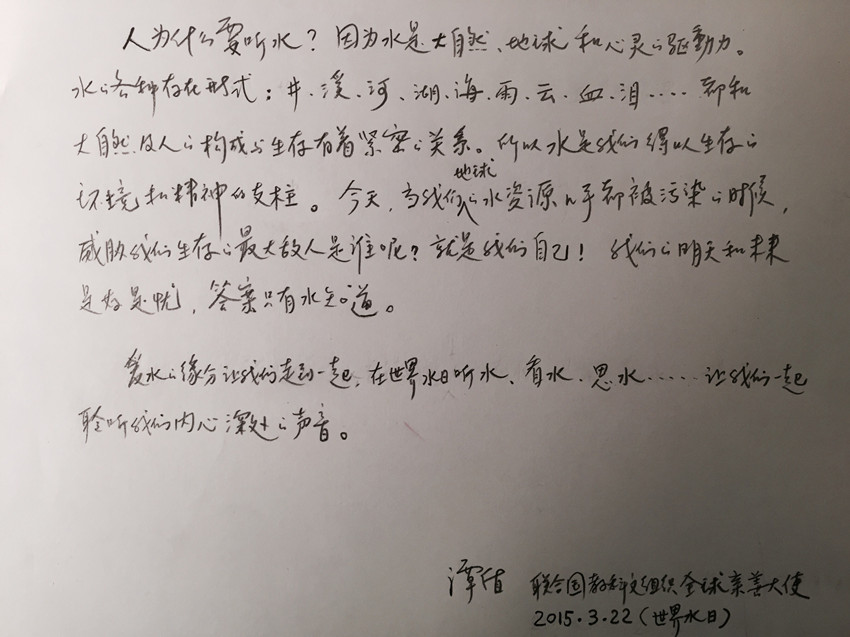 人为什么要听水？因为水是大自然、地球和心灵的驱動力。
水的各种存在形式：井、溪、河、湖、海、雨、云、血、泪……都和
大自然及人的构成与生存有着紧密的关系。所以水是我们得以生存的
地球
环境和精神的支柱。今天，当我们的水资源几乎都被污染的时候，
威胁我们生存的最大敌人是谁呢？就是我们自己！我们的明天和未来
是好是忧，答案只有水知道。
爱水的缘分让我们走到一起，在世界水日听水、看水、思水……让我们一起
聆听我们内心深处的声音。
谭盾 联合国教科文组织全球亲善大使
2015.3.22（世界水日）